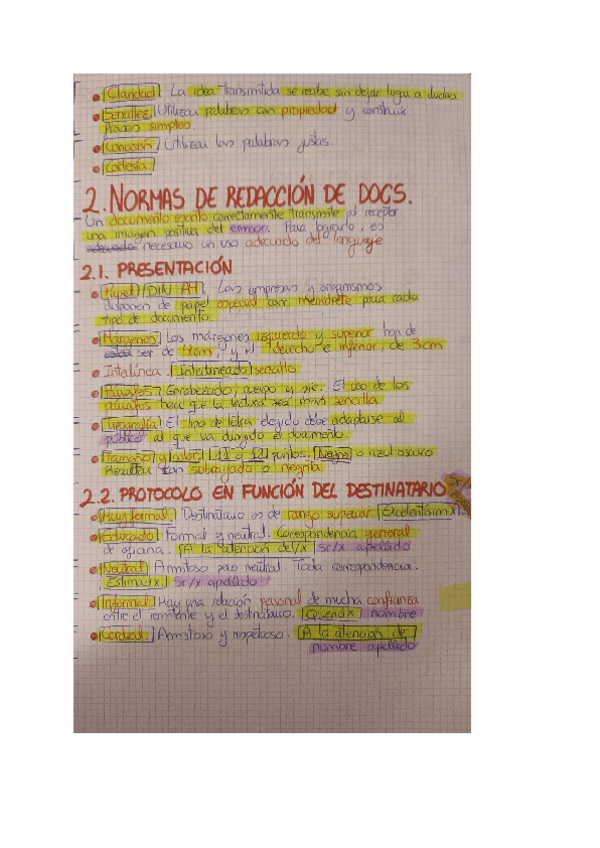 • Claridad. La idea transmitida se recibe sin dejar lugar a dudas
• Sencillez. Utilizar palabras con propiedad y construir
frases simples.
• Concisión. Utilizar las palabras justas.
• Cortesía.
2. NORMAS DE REDACCIÓN DE DOCS.
Un documento escrito correctamente transmite al receptor
una imagen positiva del emisor. Para lograrlo, es
necesario un uso adecuado del lenguaje
2.1. PRESENTACIÓN
• Papel / DIN A4. Las empresas y organismos
disponen de papel especial con membrete para cada
tipo de documento.
• Márgenes. Los márgenes izquierdo y superior han de
ser de 4cm, y el derecho e inferior, de 3cm
• Interlínea. Interlineado sencillo
• Párrafos. Encabezado, cuerpo y pie. El uso de los
párrafos hace que la lectura sea más sencilla
• Tipografía. El tipo de letra elegido debe adaptarse al
público al que va dirigido el documento.
• Tamaño y color. 11 o 12 puntos. Negro o azul oscuro
Resaltar con subrayado o negrita
2.2. PROTOCOLO EN FUNCIÓN DEL DESTINATARIO
Sr/x
• Muy formal. Destinatario es de rango superior. Excelentísimx
• Educado. Formal y neutral. Correspondencia general
de oficina. A la atención del/x Sr/x apellido
• Neutral. Amistoso pero neutral. Toda correspondencia.
Estimadx Sr/x apellido
• Informal. Hay una relación personal de mucha confianza
entre el remitente y el destinatario. Queridx nombre
• Cordial. Amistoso y respetuoso. A la atención de
nombre apellido